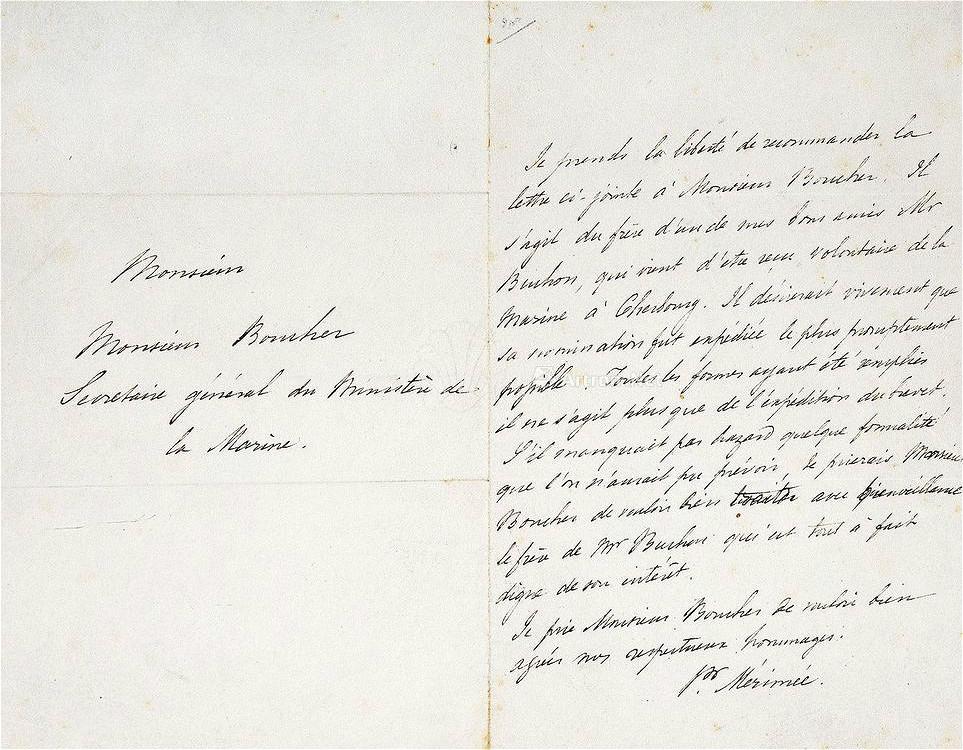 Monsieur
Monsieur Boucher
Secretaire général du Ministère de
la Marine.
Je prends la liberté de recommander la
lettre ci-jointe à Monsieur Boucher. Il
s'agit du frère d'un de mes bons amis Mr
Buchon, qui vient d'etre reçu volontaire de la
Marine à Cherbourg. Il désirerait vivement que
sa nomination fut expédiée le plus promptement
possible. Toutes les formes ayant été remplies
il ne s'agit plus que de l'expédition du brevet.
S'il manquait par hazard quelque formalité
que l'on n'aurait pu prévoir, Je prierais Monsieur
Boucher de vouloir bien traiter avec bienveillance
le frère de Mr Buchon qui est tout à fait
digne de son intérêt.
Je prie Monsieur Boucher de vouloir bien
agréer mes respectueux hommages.
Pr. Mérimée.